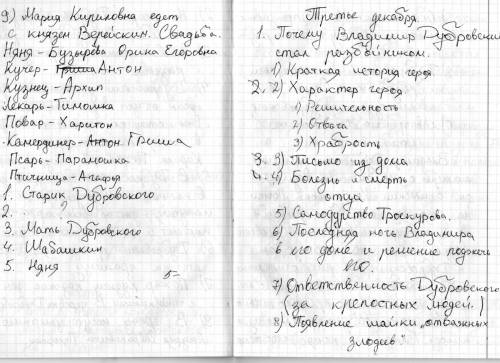 9) Мария Кириловна едет
с князем Верейским. Свадьба.
Няня - Бузырёва Орина Егоровна
Кучер - Гриша Антон
Кузнец - Архип
Лекарь - Тимошка
Повар - Харитон
Камердинер - Антон Гриша
Псарь - Парамошка
Птичница - Агафья
1. Старик Дубровского
2. ?
3. Мать Дубровского
4. Шабашкин
5. Няня
5=
Третье декабря
1. Почему Владимир Дубровский
стал разбойником.
1) Краткая история героя.
2. 2) Характер героя
1) Решительность
2) Отвага
3) Храбрость
3. 3) Письмо из дома
4. 4) Болезнь и смерть
отца
5) Самодурство Троекурова.
6) Последняя ночь Владимира
в его доме и решение поджечь
его.
7) Ответственность Дубровского
(за крепостных людей.)
8) Появление шайки „отважных
злодеев".